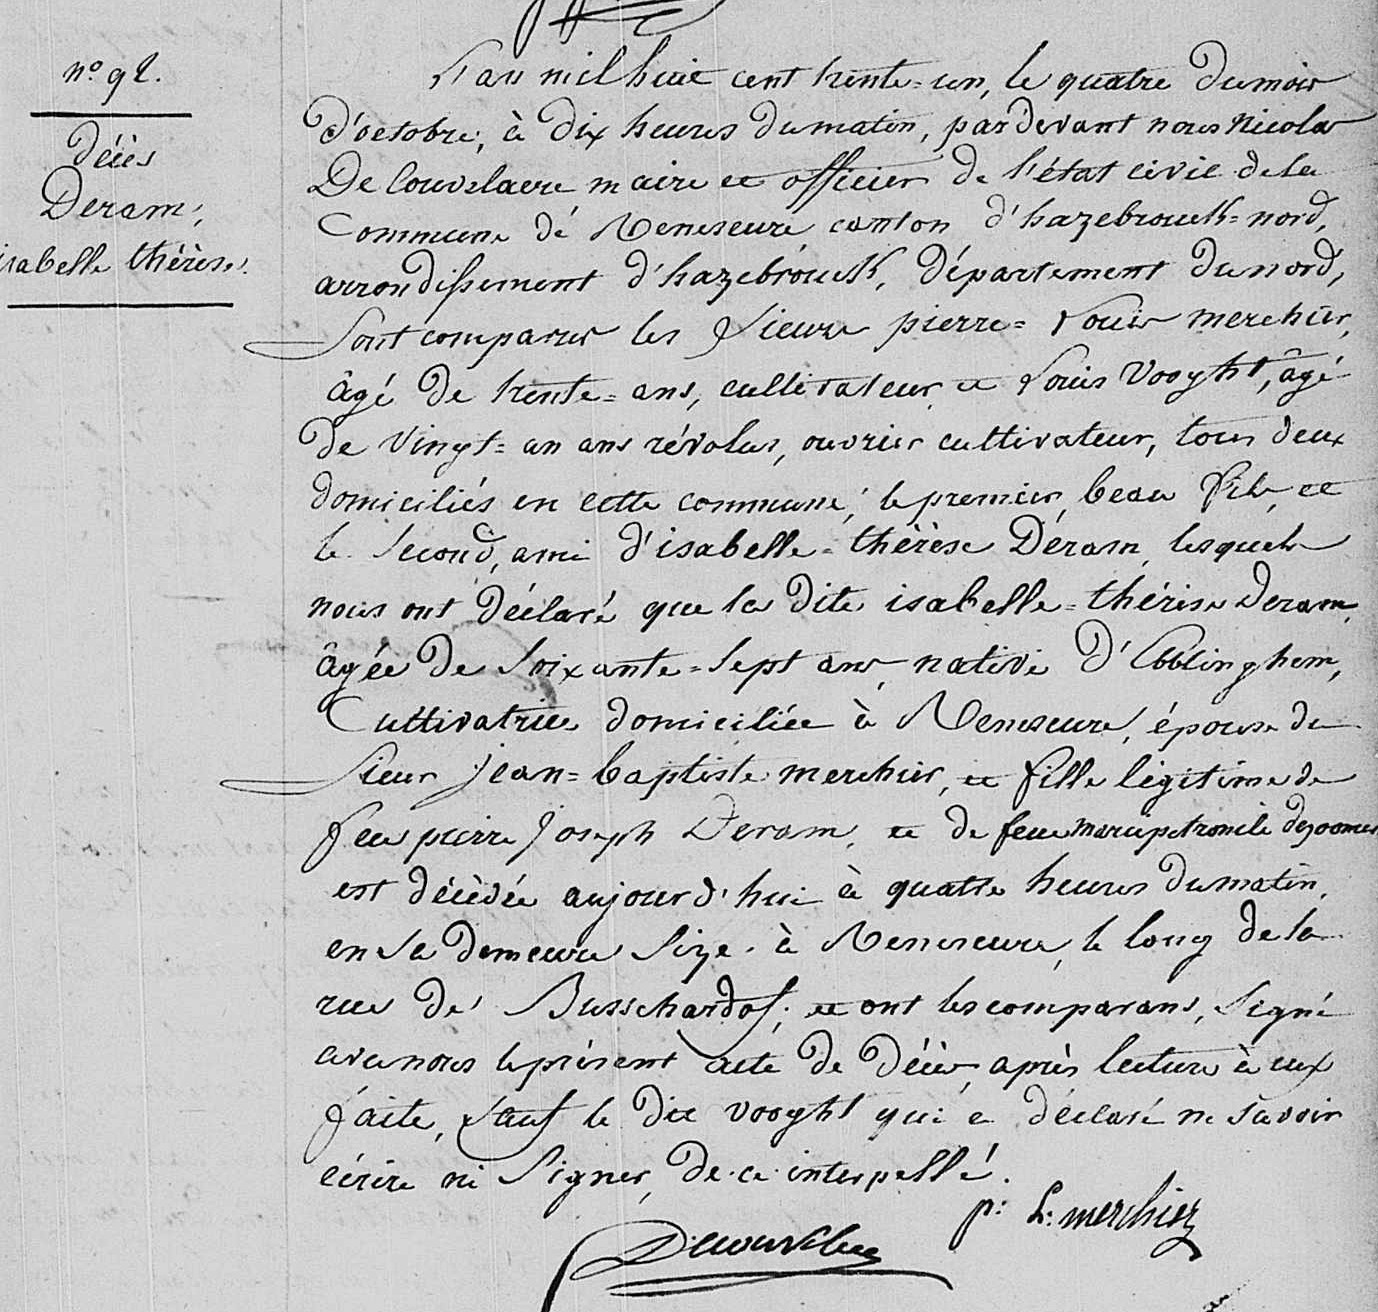 n.° 92.
décès
Deram,
isabelle thérèse.
L'an mil huit cent trente-un, le quatre du mois
d'octobre, à dix heures du matin, pardevant nous Nicolas
De Couvelaere maire et officier de l'état civil de la
Commune de Renescure canton d'hazebrouck-nord,
arrondissement d'hazebrouck, Département du nord,
Sont comparus les Sieurs pierre-Louis merchier,
âgé de trente-ans, cultivateur et Louis Vooght, âgé
de vingt-un ans révolus, ouvrier cultivateur, tous deux
domiciliés en cette commune, le premier, beau fils, et
le Second, ami d'isabelle-thérèse Deram, lesquels
nous ont Déclaré que la dite isabelle-thérèse Deram,
âgée de Soixante-Sept ans, native d'Ebblinghem,
Cultivatrice domiciliée à Renescure, épouse du
Sieur jean-baptiste merchier, et fille légitime de
feu pierre joseph Deram, et de feue marie petronile dezoomer
est décédée aujourd'hui à quatre heures du matin,
en Sa demeure Size à Renescure, le long de la
rue de Busschardof; et ont les comparans, Signé
avec nous le présent acte de Décès, après lecture à eux
faite, Sauf le dit vooght qui a déclaré ne Savoir
écrire ni Signer, de ce interpellé.
p: L: merchier
Decouvelaere